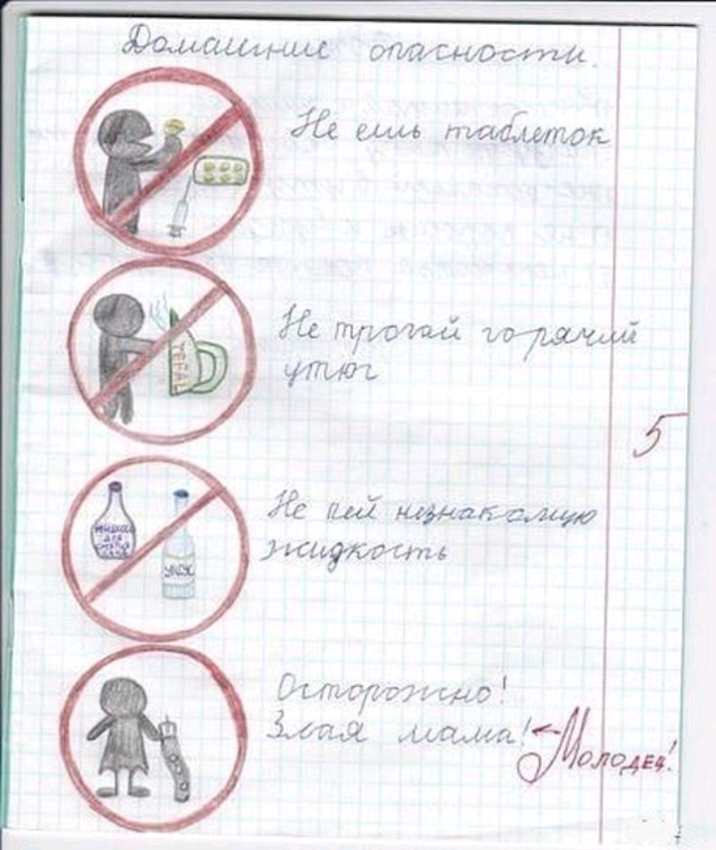 Домашние опасности.
Не ешь таблеток
TEFAL
Не трогай горячий
утюг
5
Не пей незнакамую
жидкость
жидкость
для
снятия
лака
УКСУС
Осторожно!
Злая мама!
Молодец!